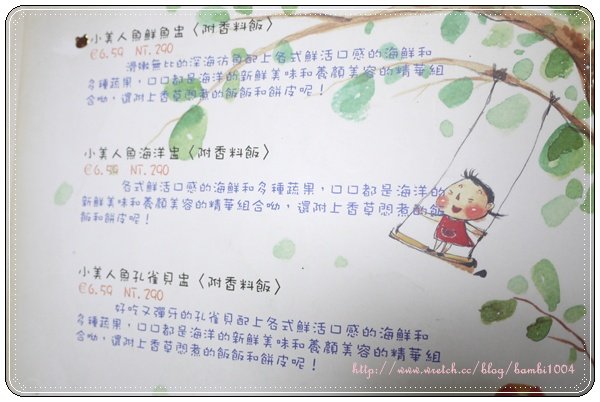 小美人魚鮮魚盅〈附香料飯〉
€6.59 NT.290
滑嫩無比的深海彷魚配上各式鮮活口感的海鮮和
多種蔬果，口口都是海洋的新鮮美味和養顏美容的精華組
合呦，還附上香草悶煮的飯飯和餅皮呢！
小美人魚海洋盅〈附香料飯〉
€6.59 NT.290
各式鮮活口感的海鮮和多種蔬果，口口都是海洋的
新鮮美味和養顏美容的精華組合呦，還附上香草悶煮的飯
飯和餅皮呢！
小美人魚孔雀貝盅〈附香料飯〉
€6.59 NT.290
好吃又彈牙的孔雀貝配上各式鮮活口感的海鮮和
多種蔬果，口口都是海洋的新鮮美味和養顏美容的精華組
合呦，還附上香草悶煮的飯飯和餅皮呢！
http://www.wretch.cc/blog/bambi1004